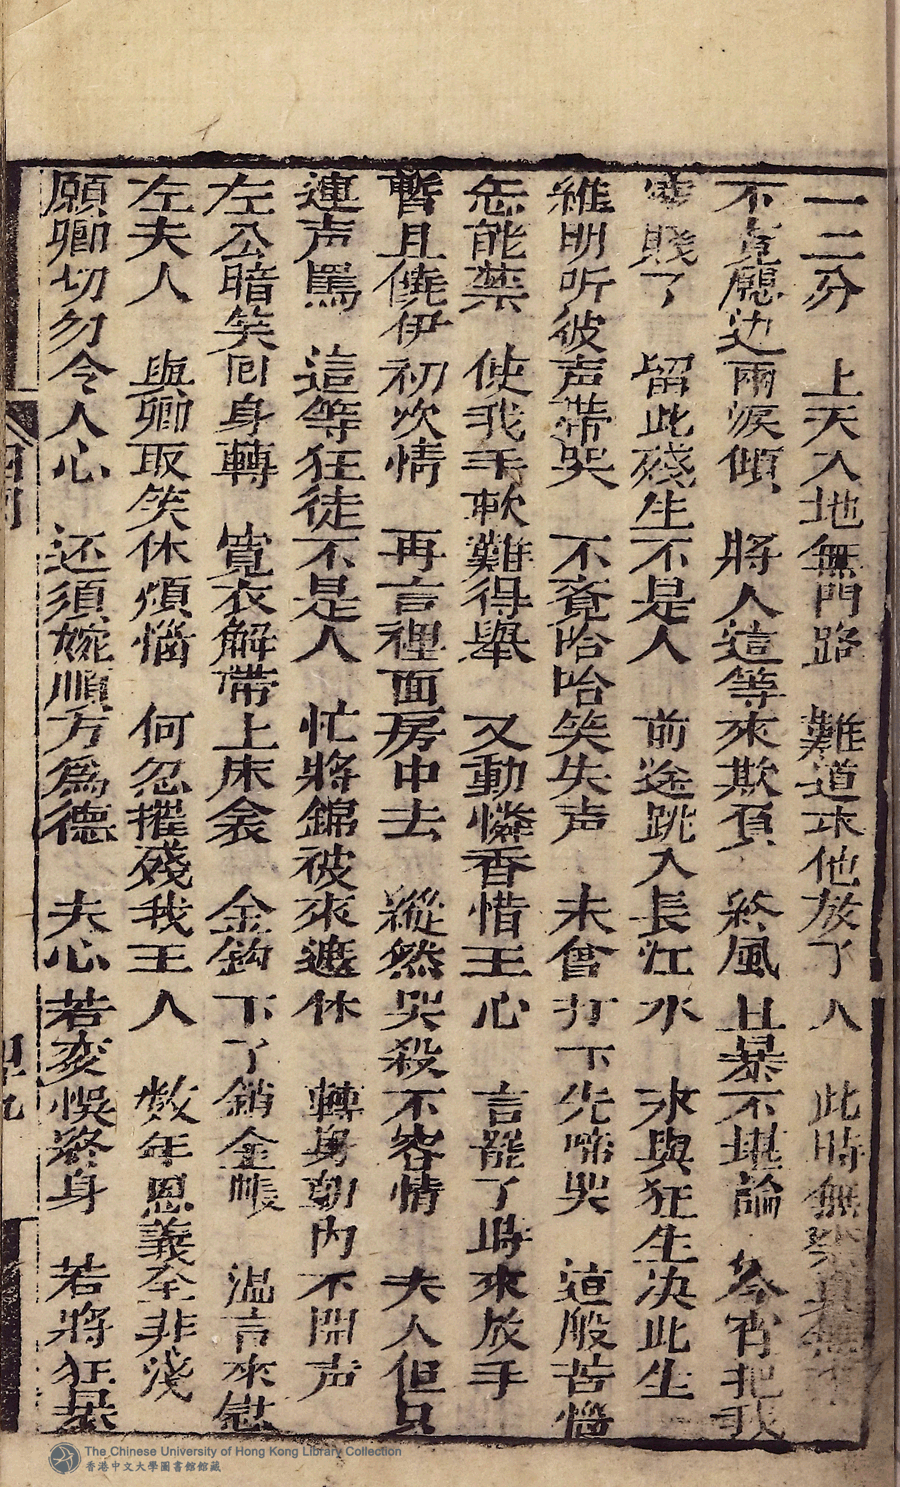 一二分　上天入地無門路　難道求他放了人　此時無柰真無
不覚愿边兩淚傾　將人這等來欺負　終風且暴不堪論　今宵把我
賤了　留此殘生不是人　前途跳入長江水　永與狂生决此生
維明听彼声帶哭　不覚哈哈笑失声　未曾打下先啼哭　這般苦惱
怎能禁　使我手軟難得舉　又動憐香惜玉心　言罷了時來放手
暫且饒伊初次情　再言裡面房中去　縱然哭殺不容情　夫人但只
連声罵　這等狂徒不是人　忙將錦被來遮体　轉身朝內不開声
左公暗笑囘身轉　寬衣解帶上床衾　金鈎下了銷金帳　温言來慰
左夫人　與卿取笑休煩惱　何忍摧殘我玉人　数年恩義全非淺
願卿切勿令人心　还須婉順方為德　夫心若変悞終身　若將狂暴
The Chinese University of Hong Kong Library Collection
香港中文大學圖書館館藏